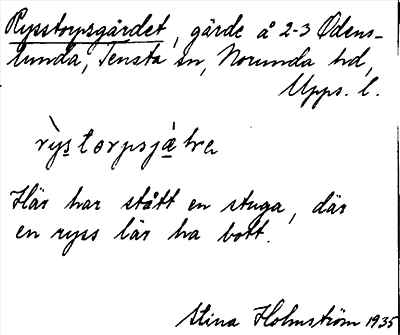 Rysstorpsgärdet, gärde å 2-3 Ödens-
lunda, Tensta sn, Norunda hd,
Upps. l.
Här har stått en stuga, där
en ryss lär ha bott.
Stina Holmström 1935